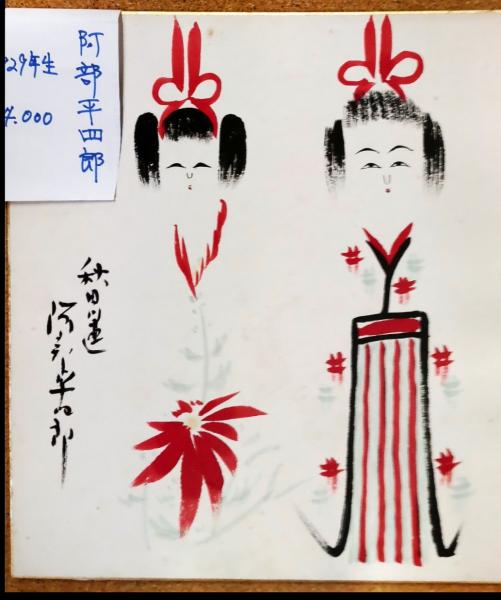 阿部平四郎
29年生
4.000
秋田県
阿部平四郎